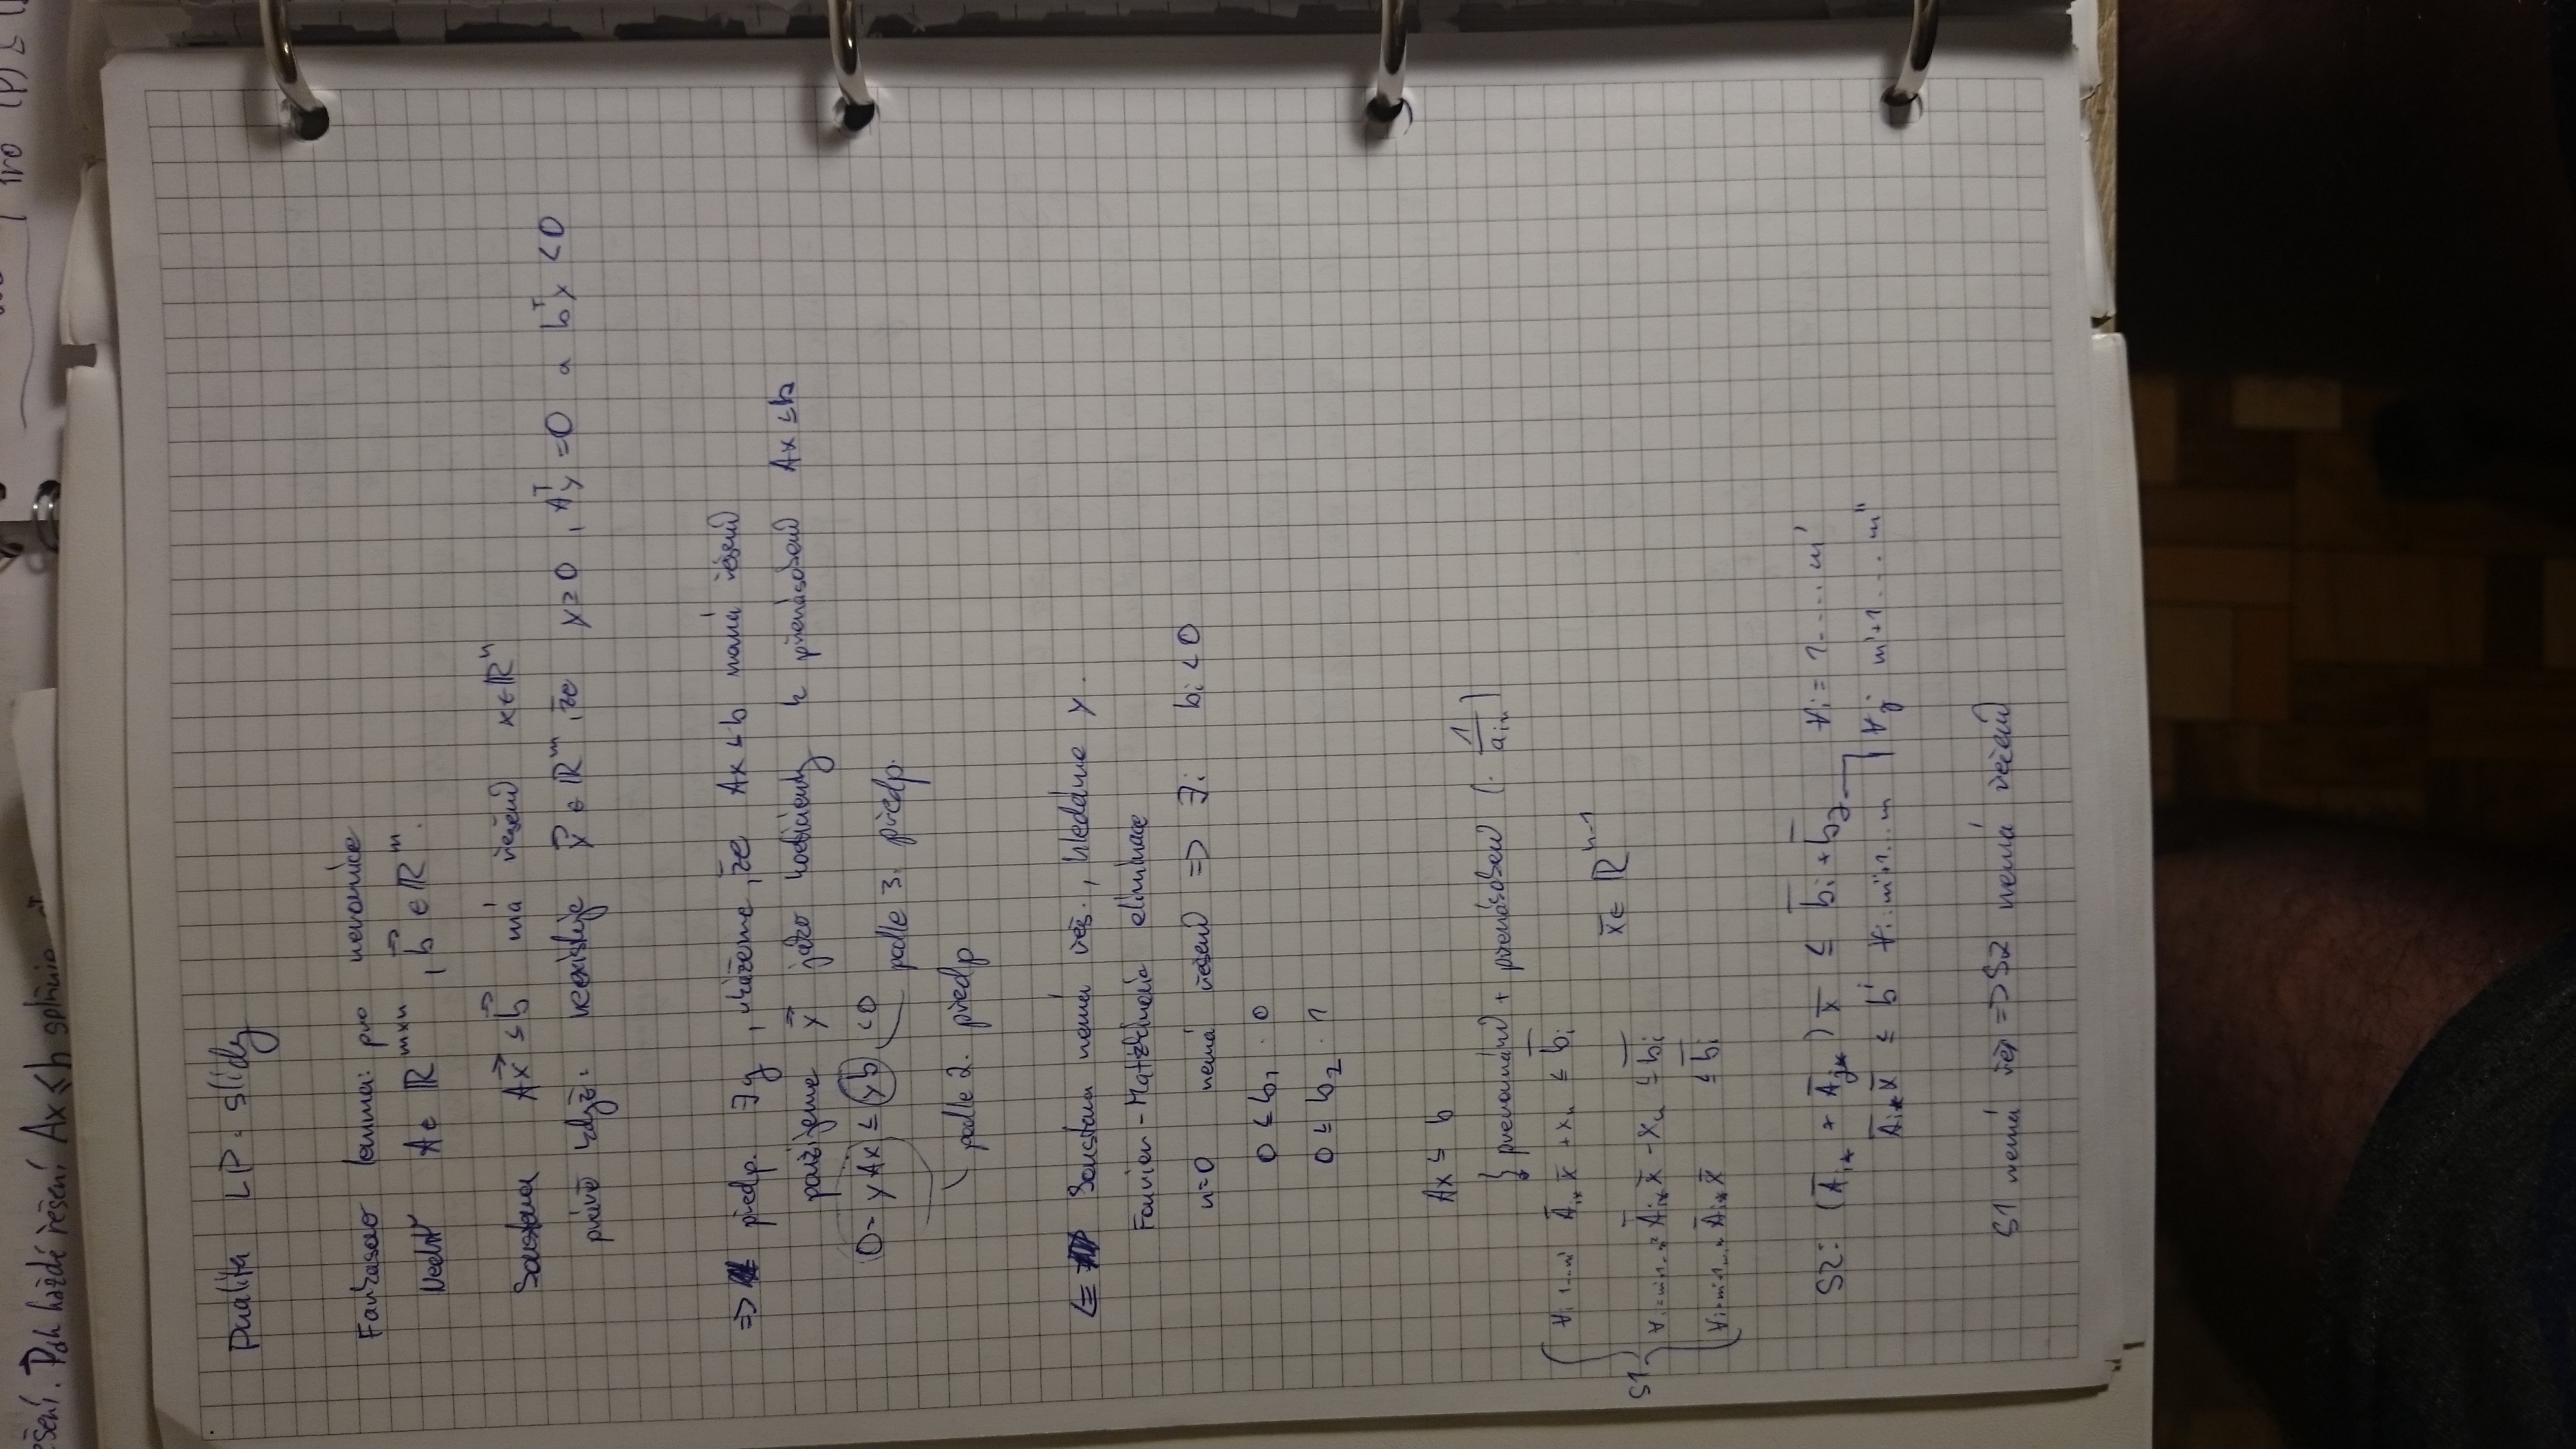 Dualita LP - slidy
Farkasovo lemma: pro nerovnice
Nechť A ∈ ℝ^{m×n}, b⃗ ∈ ℝ^m.
Soustava Ax⃗ ≤ b⃗ má řešení x ∈ ℝ^n
právě když: neexistuje y⃗ ∈ ℝ^m, že y ≥ 0, A^T y = 0 a b^T y < 0
=> předp. ∃y, ukážeme, že Ax ≤ b nemá řešení
použijeme y⃗ jako koeficienty k přenásobení Ax ≤ b
0 = yAx ≤ yb < 0
podle 3. předp.
podle 2. předp
<= Soustava nemá řeš., hledáme y.
Fourier-Motzkinova eliminace
n=0 nemá řešení => ∃i b_i < 0
0 ≤ b_1 · 0
0 ≤ b_2 · 1
Ax ≤ b
} přerovnání + přenásobení (· 1/a_{in})
S1 { ∀i 1...m' A̅_{i*} x̅ + x_n ≤ b̅_i
x̅ ∈ ℝ^{n-1}
∀i=m'+1...m'' A̅_{i*} x̅ - x_n ≤ b̅_i
∀i=m''+1...m A̅_{i*} x̅ ≤ b̅_i
S2: (A̅_{i*} + A̅_{j*}) x̅ ≤ b̅_i + b̅_j ∀i = 1....m'
∀j m'+1....m''
A̅_{i*} x̅ ≤ b̅_i ∀i m''+1..m
S1 nemá řeš => S2 nemá řešení
ešení. Pak každé řešení Ax ≤ b splňuje
pro (P)